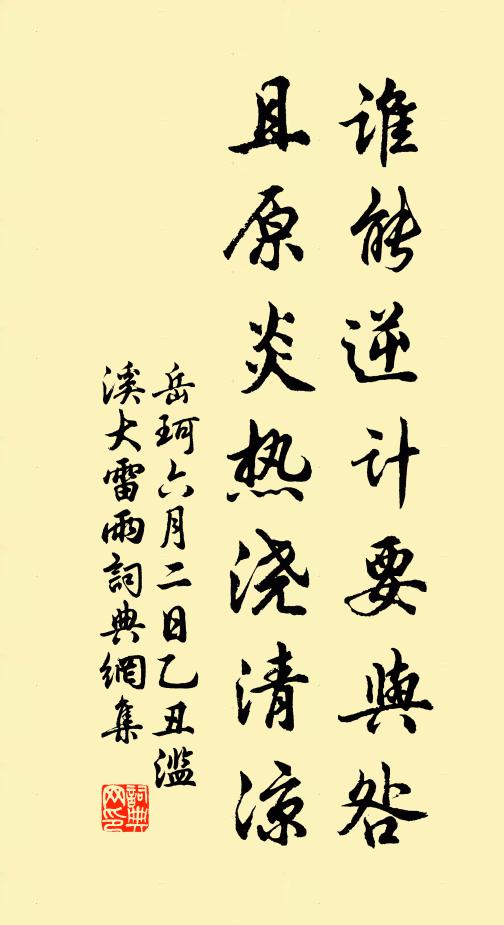 誰能逆計要與咎
且原炎热浇清涼
岳珂六月二日乙丑滥
溪大雷雨詞典網集
詞典
网印